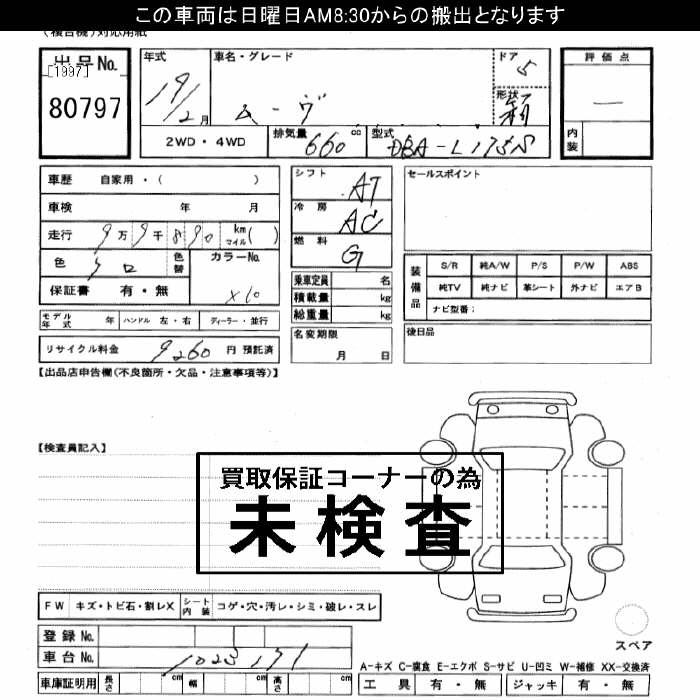 この車両は日曜日AM8:30からの搬出となります
(複合機)対応用紙
出品No.
[1997]
80797
年式
19/2月
車名・グレード
ムーヴ
ドア
5
形状
箱
2WD・4WD
排気量
660 cc
型式
DBA-L175S
評価点
―
内装
車歴 自家用・( )
車検 年 月
走行 9万9千890 km マイル( )
色 シロ
色替
カラーNo.
X10
保証書 有・無
シフト
AT
冷房
AC
燃料
G
乗車定員 名
積載量 kg
総重量 kg
名変期限
月 日
セールスポイント
装備品
S/R 純A/W P/S P/W ABS
純TV 純ナビ 革シート 外ナビ エアB
ナビ型番:
後日品
モデル年式 年 ハンドル 左・右 ディーラー・並行
リサイクル料金 9260 円 預託済
【出品店申告欄(不良箇所・欠品・注意事項等)】
【検査員記入】
買取保証コーナーの為
未検査
FW キズ・トビ石・割レX シート内装 コゲ・穴・汚レ・シミ・破レ・スレ
スペア
登録No.
車台No. 1023171
車庫証明用 長さ cm 幅 cm 高さ cm
A-キズ C-腐食 E-エクボ S-サビ U-凹ミ W-補修 XX-交換済
工具 有・無 ジャッキ 有・無